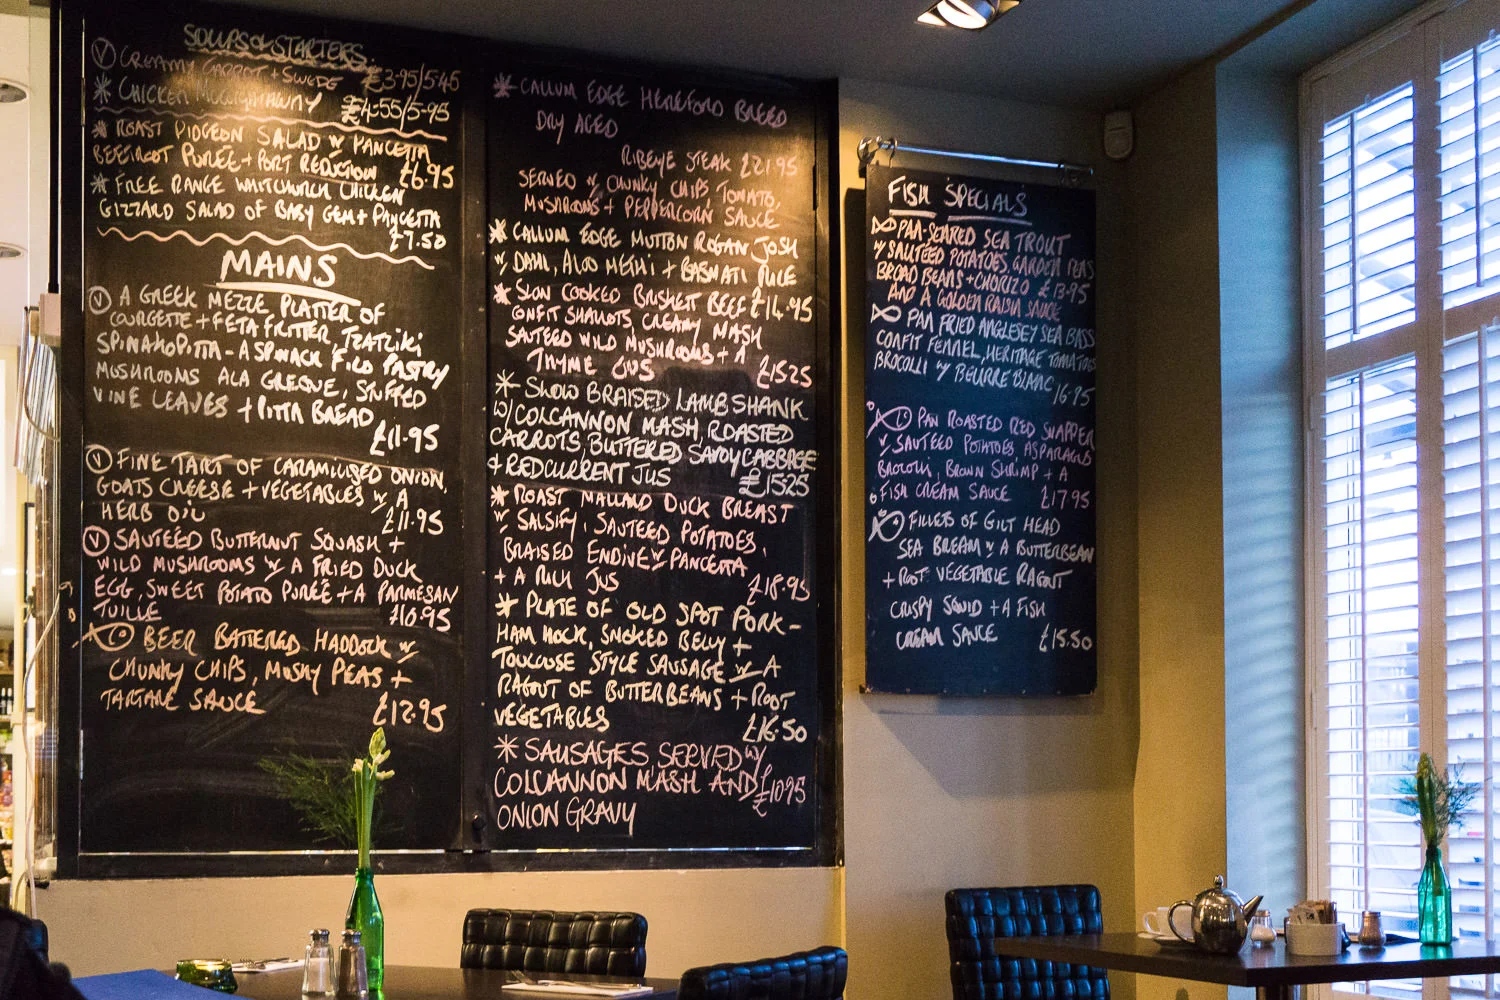 SOUPS & STARTERS.
Ⓥ CREAMY CARROT + SWEDE £3.95/5.45
* CHICKEN MULLIGATAWNY £4.55/5.95
* ROAST PIDGEON SALAD W PANCETTA
BEETROOT PURÉE + PORT REDUCTION £6.95
* FREE RANGE WHITCHURCH CHICKEN
GIZZARD SALAD OF BABY GEM + PANCETTA
£7.50
MAINS
Ⓥ A GREEK MEZZE PLATTER OF
COURGETTE + FETA FRITTER, TZATZIKI
SPINAKOPITTA - A SPINACK FILO PASTRY
MUSHROOMS ALA GREQUE, STUFFED
VINE LEAVES + PITTA BREAD
£11.95
Ⓥ FINE TART OF CARAMILISED ONION,
GOATS CHEESE + VEGETABLES W A
HERB OIL £11.95
Ⓥ SAUTÉED BUTTERNUT SQUASH +
WILD MUSHROOMS W A FRIED DUCK
EGG, SWEET POTATO PURÉE + A PARMESAN
TUILLE £10.95
BEER BATTERED HADDOCK W
CHUNKY CHIPS, MUSHY PEAS +
TARTARE SAUCE £12.95
* CALLUM EDGE HEREFORD BREED
DRY AGED
RIBEYE STEAK £21.95
SERVED W CHUNKY CHIPS, TOMATO,
MUSHROOMS + PEPPERCORN SAUCE
* CALLUM EDGE MUTTON ROGAN JOSH
W DAHL, ALOO METHI + BASMATI RICE
£14.95
* SLOW COOKED BRISKETT BEEF
CONFIT SHALLOTS, CREAMY MASH
SAUTEED WILD MUSHROOMS + A
THYME JUS £15.25
* SLOW BRAISED LAMB SHANK
W/ COLCANNON MASH, ROASTED
CARROTS, BUTTERED SAVOY CABBAGE
& REDCURRENT JUS £15.25
* ROAST MALLARD DUCK BREAST
W SALSIFY, SAUTEED POTATOES,
BRAISED ENDIVE W PANCETTA
+ A RICH JUS £18.95
* PLATE OF OLD SPOT PORK -
HAM HOCK, SMOKED BELLY +
TOULOUSE STYLE SAUSAGE W A
RAGOUT OF BUTTERBEANS + ROOT
VEGETABLES £16.50
* SAUSAGES SERVED W/
COLCANNON MASH AND £10.95
ONION GRAVY
FISH SPECIALS
PAN-SEARED SEA TROUT
W SAUTEED POTATOES, GARDEN PEAS
BROAD BEANS + CHORIZO £13.95
AND A GOLDEN RAISIN SAUCE
PAN FRIED ANGLESEY SEA BASS
CONFIT FENNEL, HERITAGE TOMATOES
BROCOLLI W BEURRE BLANC 16.95
PAN ROASTED RED SNAPPER
W SAUTEED POTATOES ASPARAGUS
BROCOLI, BROWN SHRIMP + A
FISH CREAM SAUCE £17.95
FILLETS OF GILT HEAD
SEA BREAM W A BUTTERBEAN
+ ROOT VEGETABLE RAGOUT
CRISPY SQUID + A FISH
CREAM SAUCE £15.50